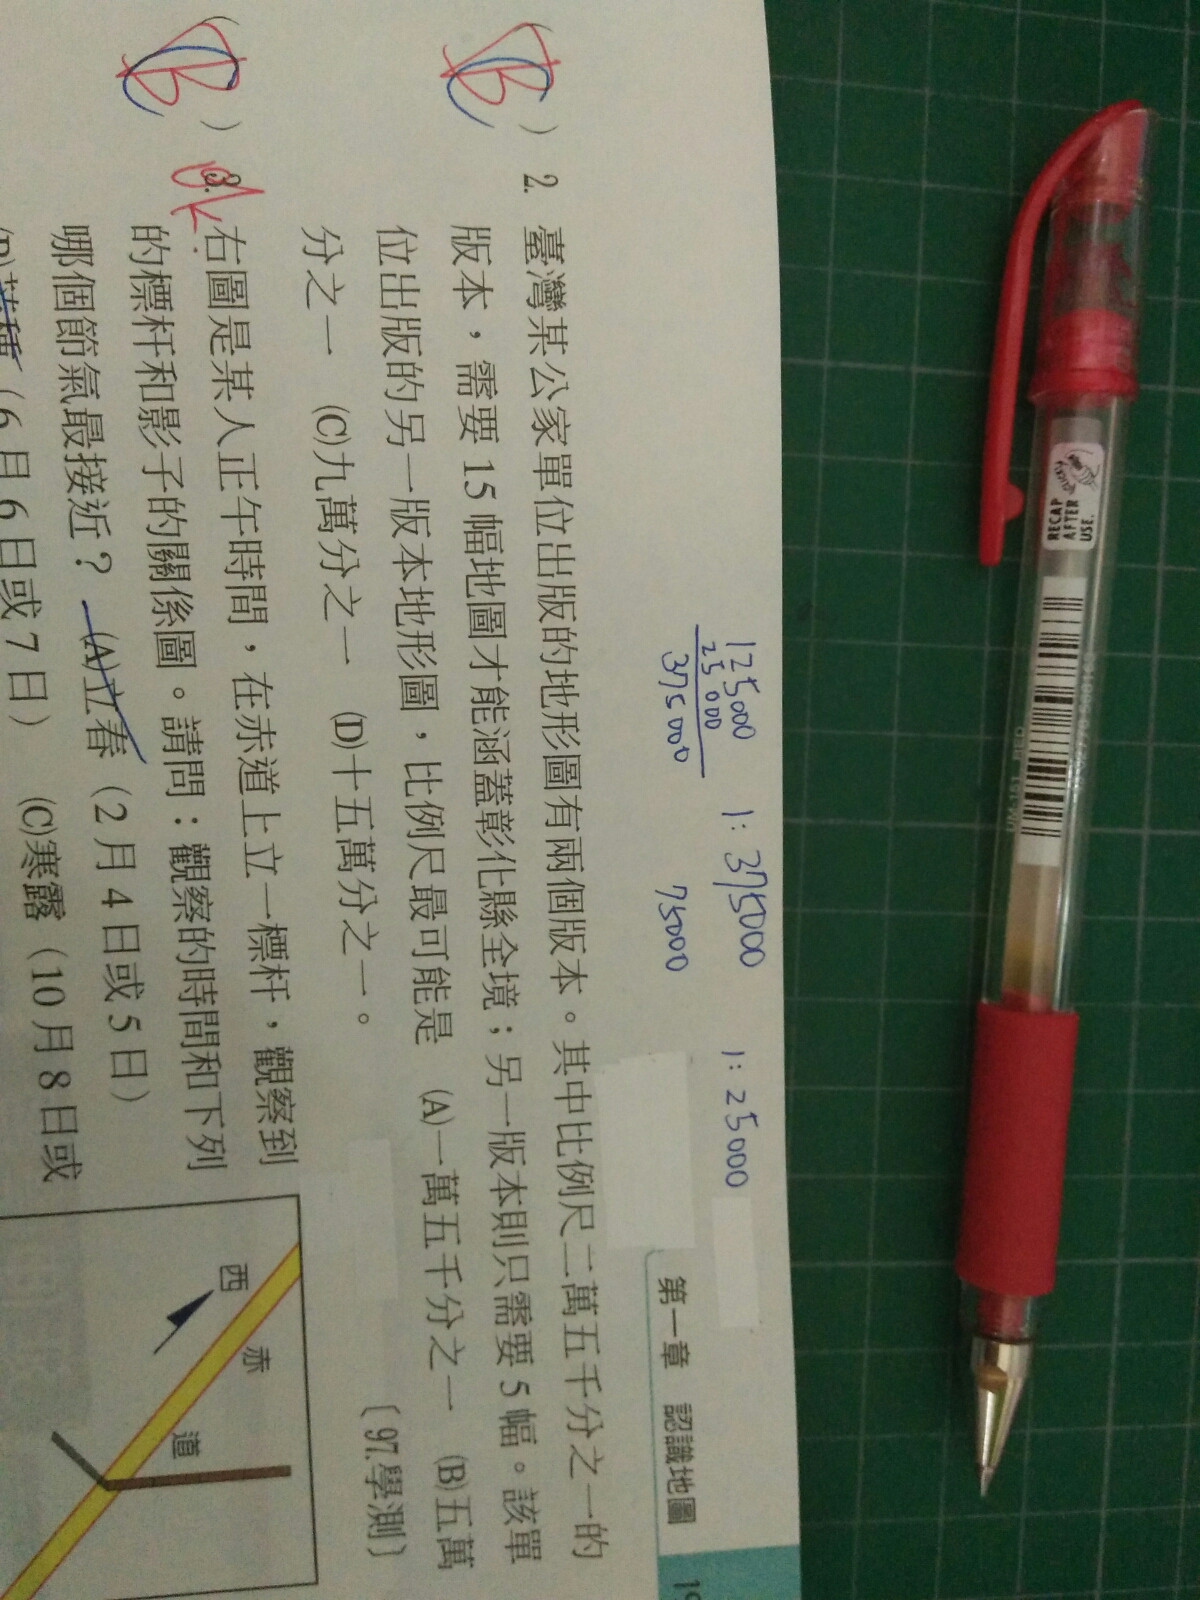 125000
25000
375000
1: 375000
75000
1: 25000
第一章 認識地圖
B
) 2. 臺灣某公家單位出版的地形圖有兩個版本。其中比例尺二萬五千分之一的
版本，需要15幅地圖才能涵蓋彰化縣全境；另一版本則只需要5幅。該單
位出版的另一版本地形圖，比例尺最可能是 (A)一萬五千分之一 (B)五萬
分之一 (C)九萬分之一 (D)十五萬分之一。
〔97.學測〕
B
) 3. 右圖是某人正午時間，在赤道上立一標杆，觀察到
的標杆和影子的關係圖。請問：觀察的時間和下列
哪個節氣最接近？ (A)立春（2月4日或5日）
(B)芒種（6月6日或7日） (C)寒露（10月8日或
西
赤
道
RECAP
AFTER
USE.